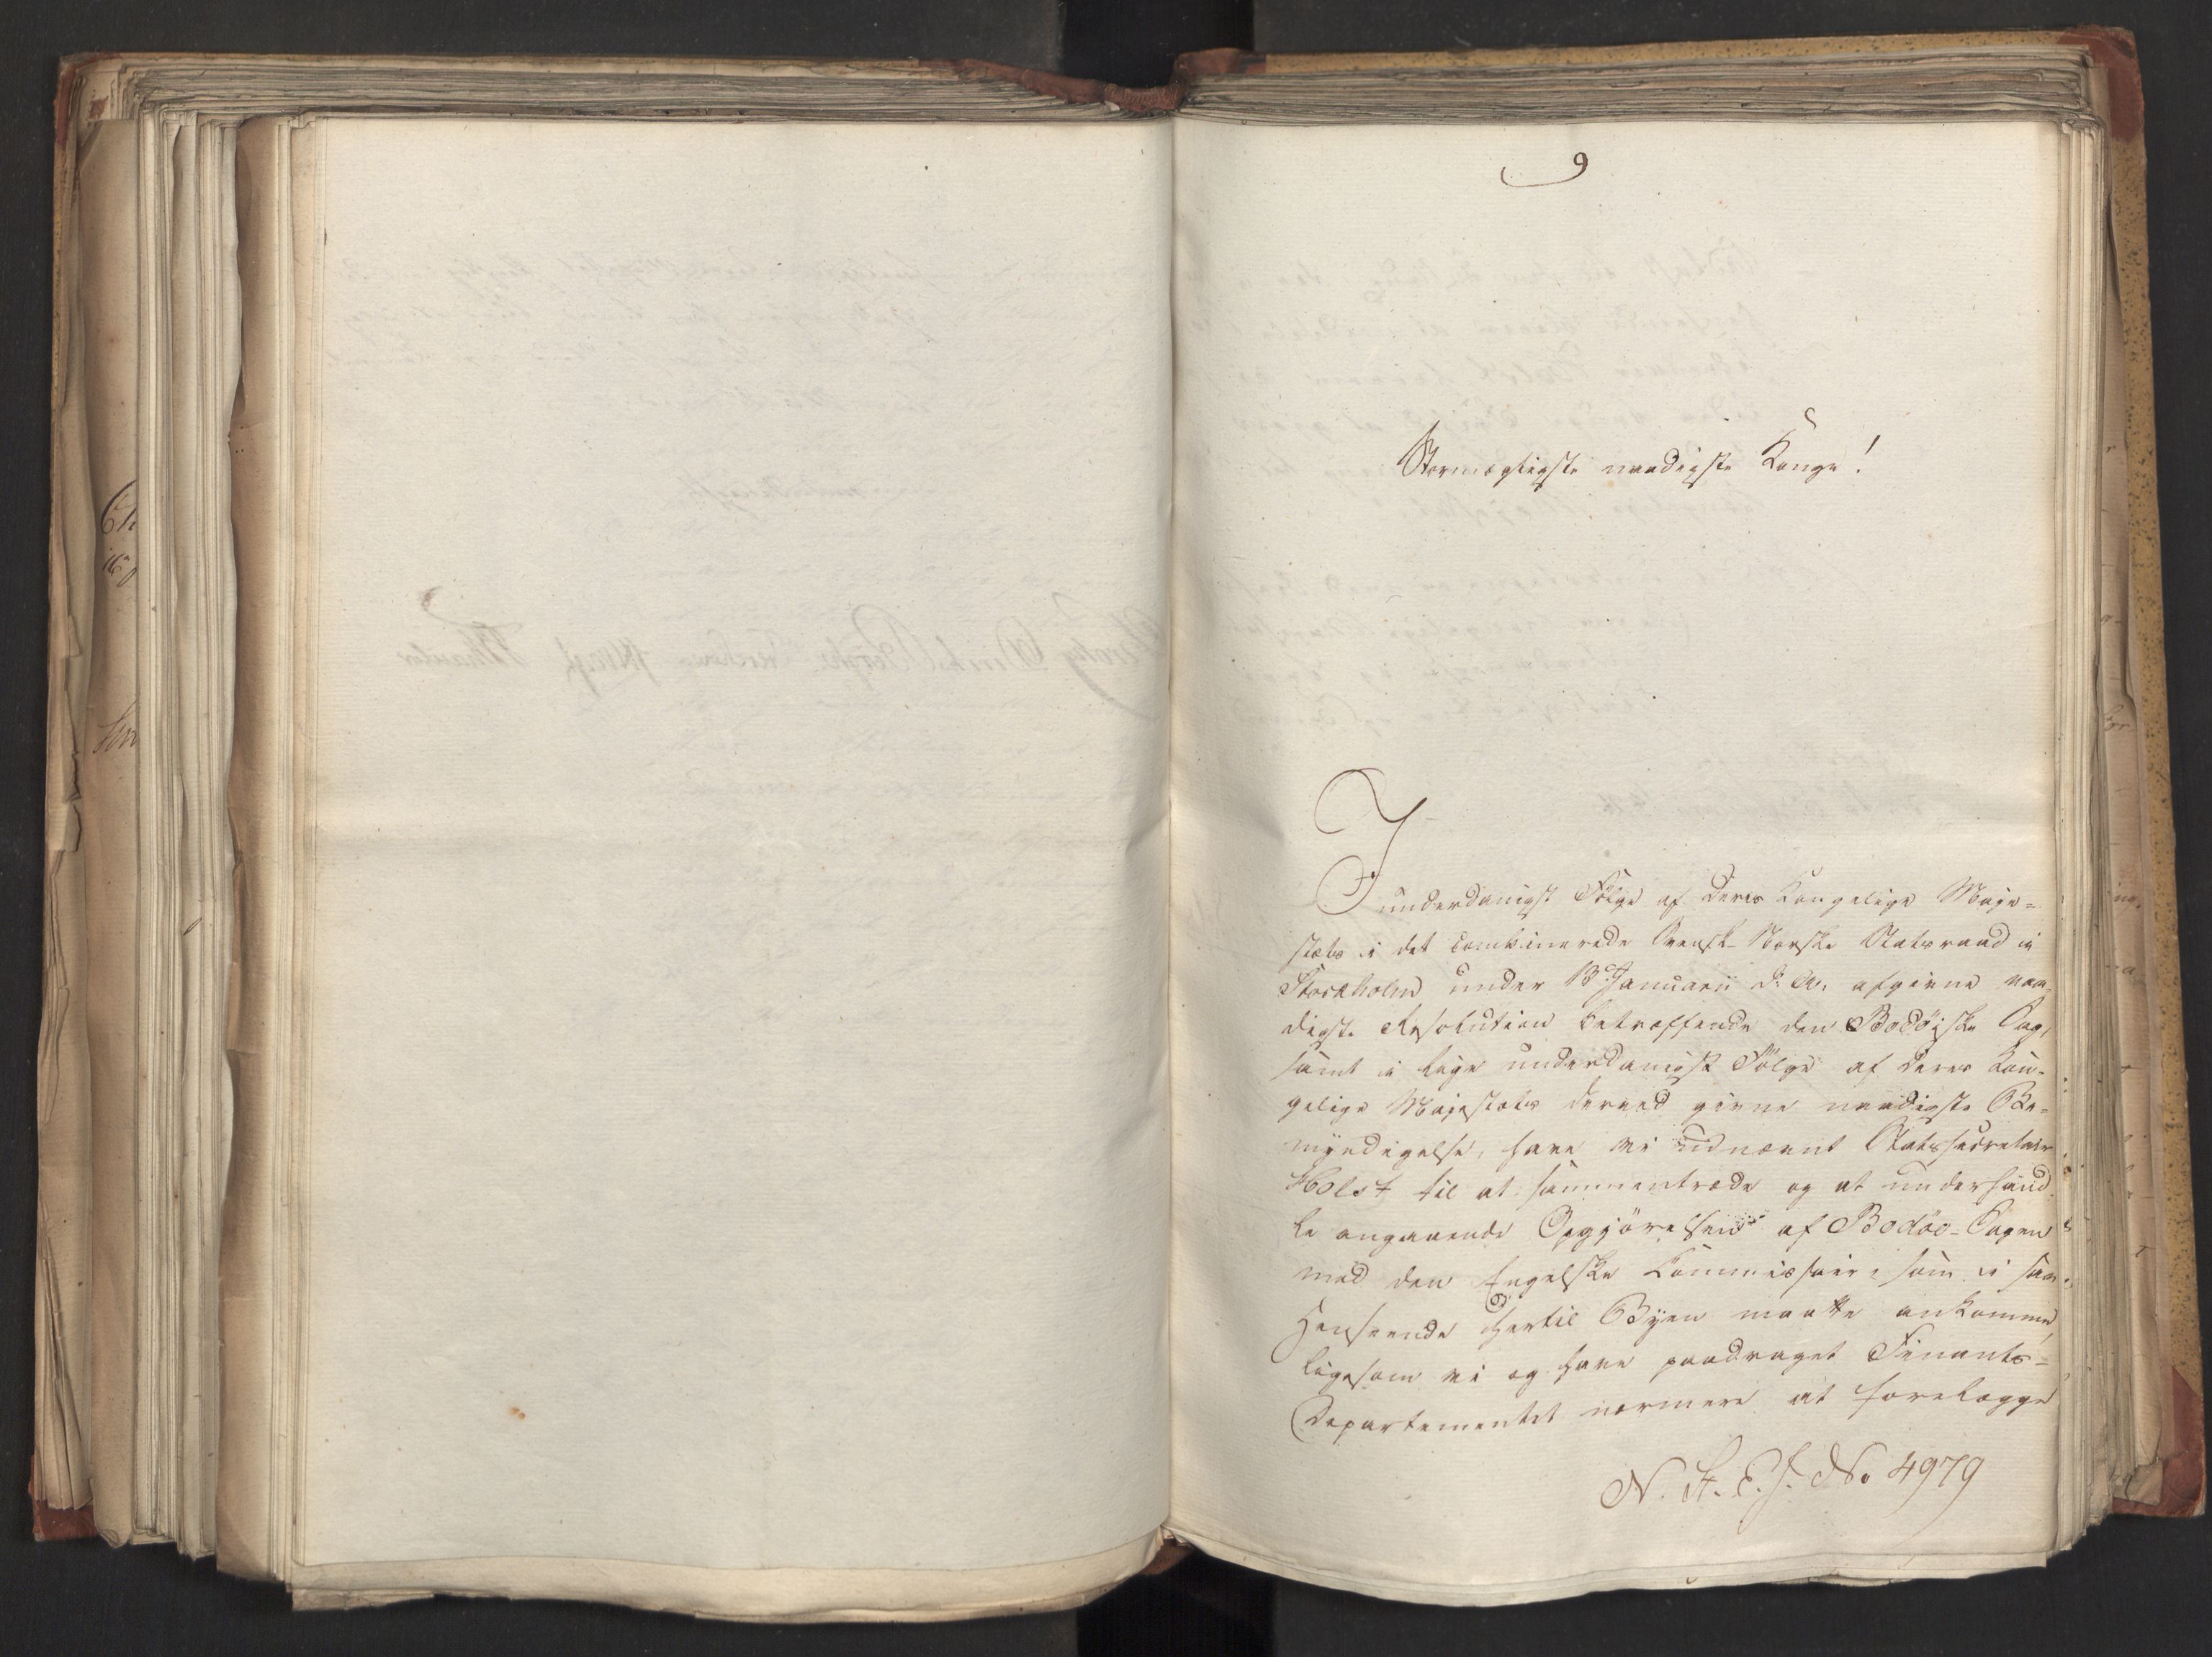 9
Stormægtigste naadigste Konge!
I
underdanigst Følge af Deres Kongelige Maje=
stæts i det combinerede Svensk-Norske Statsraad i
Stockholm under 13 Januarii d. A. afgivne naa-
digste Resolution betræffende den Bodøiske Sag,
samt i lige underdanigst Følge af Deres Kon-
gelige Majestæts derved givne naadigste Be-
myndigelse, have vi udnævnt Statssecretair
Holst til at sammentræde og at underhand-
le angaaende Opgjørelsen af Bodøe-Sagen
med den Engelske Commissair, som i saa
Henseende hertil Byen maatte ankomme,
ligesom vi og have paadraget Finants-
Departementet nærmere at forelægge
N. St. E. J. No 4979